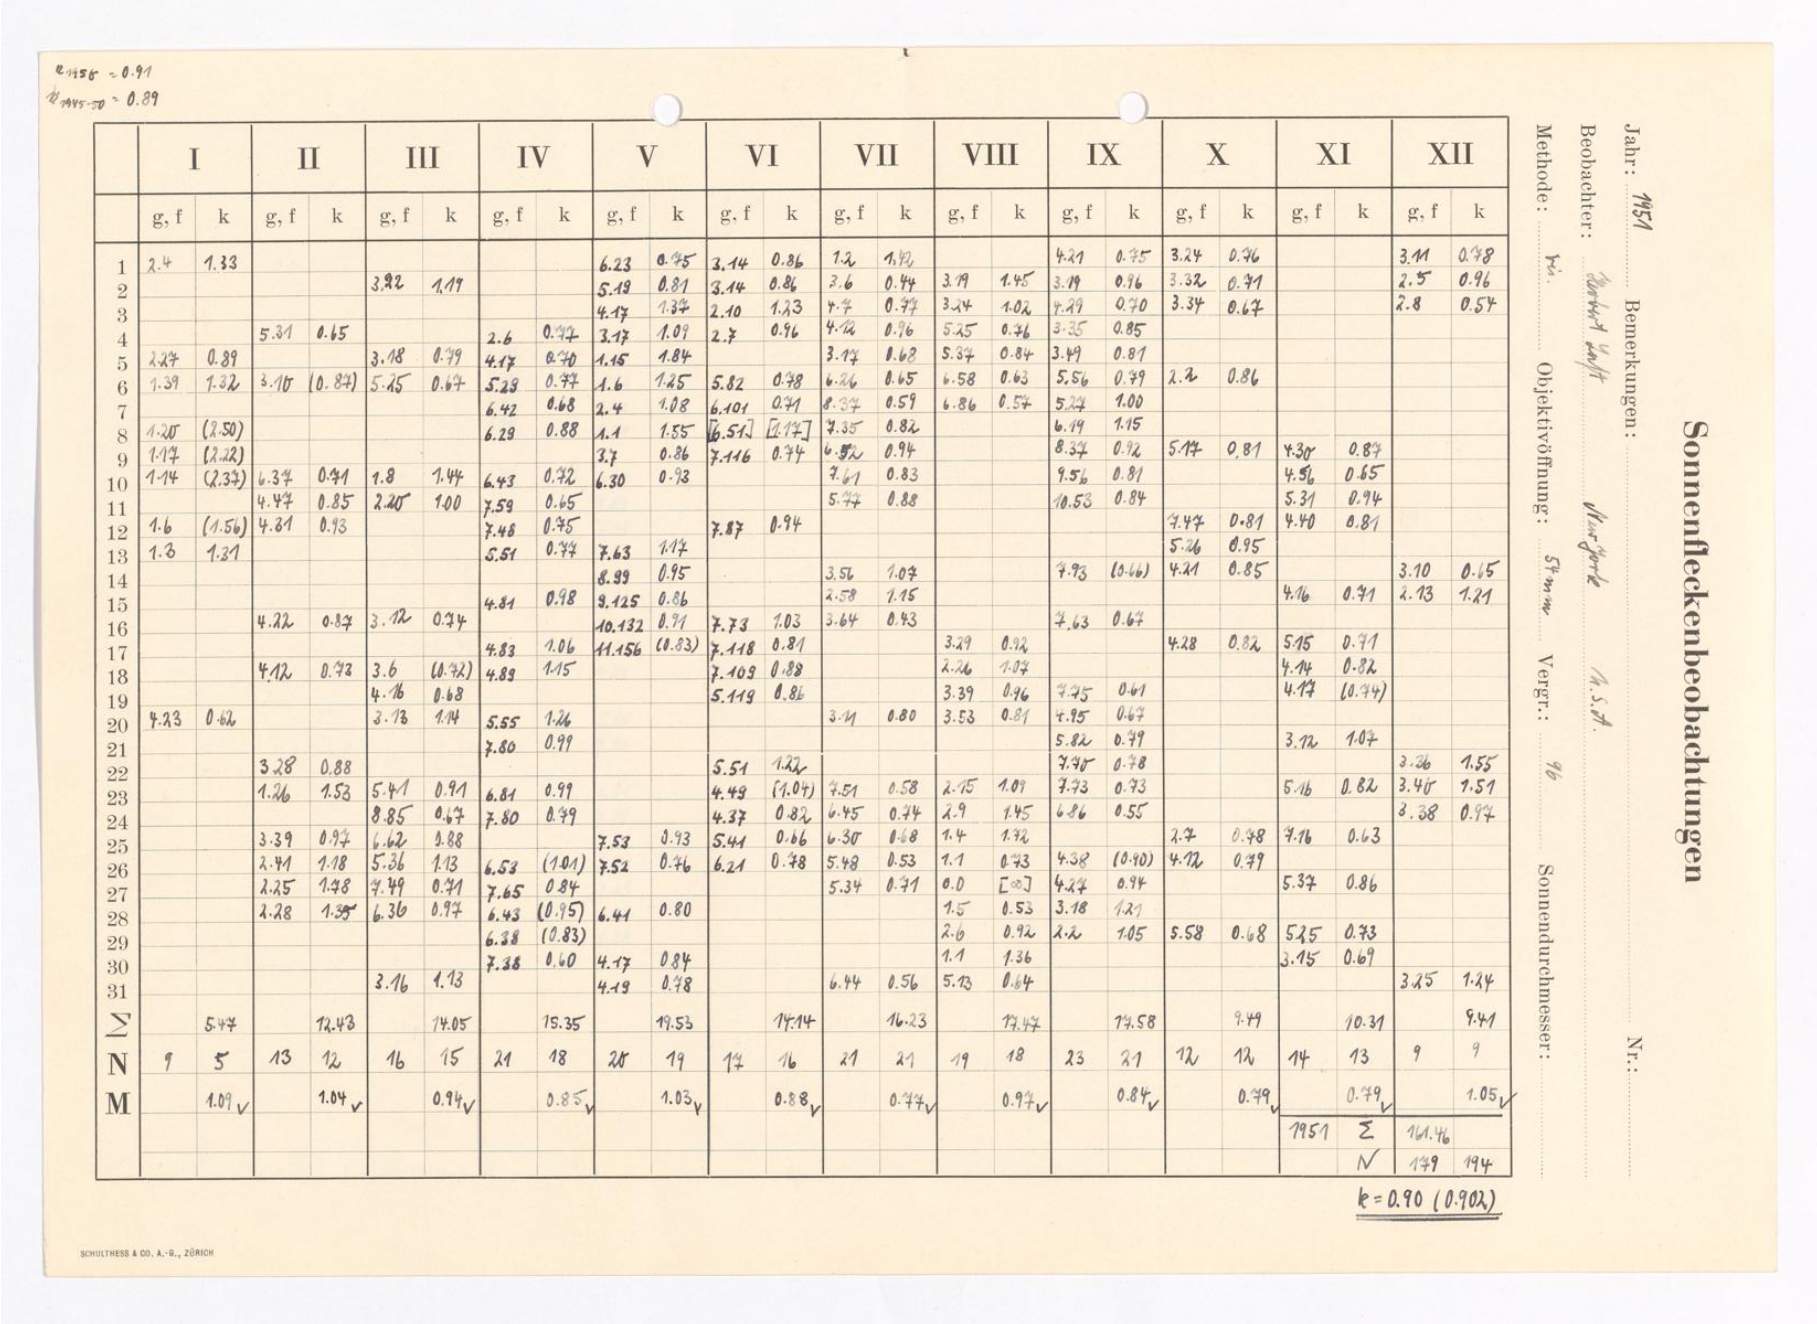 k 1958 = 0.91
k 1945-50 = 0.89
I II III IV V VI VII VIII IX X XI XII
g, f k g, f k g, f k g, f k g, f k g, f k g, f k g, f k g, f k g, f k g, f k g, f k
1 2.4 1.33 6.23 0.75 3.14 0.86 1.2 1.42 4.21 0.75 3.24 0.76 3.11 0.78
2 3.22 1.19 5.19 0.81 3.14 0.86 3.6 0.44 3.19 1.45 3.19 0.96 3.32 0.71 2.5 0.96
3 4.17 1.37 2.10 1.23 4.7 0.77 3.24 1.02 4.29 0.70 3.34 0.67 2.8 0.54
4 5.31 0.65 2.6 0.77 3.17 1.09 2.7 0.96 4.12 0.96 5.25 0.76 3.35 0.85
5 2.27 0.89 3.18 0.79 4.17 0.70 1.15 1.84 3.17 0.68 5.37 0.84 3.49 0.81
6 1.39 1.32 3.10 (0.87) 5.25 0.67 5.29 0.77 1.6 1.25 5.82 0.78 6.26 0.65 6.58 0.63 5.56 0.79 2.2 0.86
7 6.42 0.68 2.4 1.08 6.101 0.71 8.37 0.59 6.86 0.57 5.27 1.00
8 1.20 (2.50) 6.29 0.88 1.1 1.55 [6.51] [1.17] 7.35 0.82 6.19 1.15
9 1.17 (2.22) 3.7 0.86 7.116 0.74 6.52 0.94 8.37 0.92 5.17 0.81 4.30 0.87
10 1.14 (2.37) 6.37 0.71 1.8 1.44 6.43 0.72 6.30 0.93 7.61 0.83 9.56 0.81 4.56 0.65
11 4.47 0.85 2.20 1.00 7.59 0.65 5.77 0.88 10.53 0.84 5.31 0.94
12 1.6 (1.56) 4.31 0.93 7.48 0.75 7.87 0.94 7.47 0.81 4.40 0.81
13 1.3 1.31 5.51 0.77 7.63 1.17 5.26 0.95
14 8.99 0.95 3.56 1.07 7.93 (0.66) 4.21 0.85 3.10 0.65
15 4.81 0.98 9.125 0.86 2.58 1.15 4.16 0.71 2.13 1.21
16 4.22 0.87 3.12 0.74 10.132 0.91 7.73 1.03 3.64 0.43 7.63 0.67
17 4.83 1.06 11.156 (0.83) 7.118 0.81 3.29 0.92 4.28 0.82 5.15 0.71
18 4.12 0.73 3.6 (0.72) 4.89 1.15 7.109 0.88 2.26 1.07 4.14 0.82
19 4.16 0.68 5.119 0.86 3.39 0.96 7.75 0.61 4.17 (0.74)
20 4.23 0.62 3.13 1.14 5.55 1.26 3.11 0.80 3.53 0.81 4.95 0.67
21 7.80 0.99 5.82 0.79 3.12 1.07
22 3.28 0.88 5.51 1.22 7.70 0.78 3.26 1.55
23 1.26 1.53 5.41 0.91 6.81 0.99 4.49 (1.04) 7.51 0.58 2.15 1.09 7.73 0.73 5.16 0.82 3.40 1.51
24 8.85 0.67 7.80 0.79 4.37 0.82 6.45 0.74 2.9 1.45 6.86 0.55 3.38 0.97
25 3.39 0.97 6.62 0.88 7.53 0.93 5.41 0.66 6.30 0.68 1.4 1.72 2.7 0.78 7.16 0.63
26 2.41 1.18 5.36 1.13 6.53 (1.01) 7.52 0.76 6.21 0.78 5.48 0.53 1.1 0.73 4.38 (0.90) 4.12 0.79
27 2.25 1.78 7.49 0.71 7.65 0.84 5.34 0.71 0.0 [∞] 4.27 0.94 5.37 0.86
28 2.28 1.35 6.36 0.97 6.43 (0.95) 6.41 0.80 1.5 0.53 3.18 1.21
29 6.38 (0.83) 2.6 0.92 2.2 1.05 5.58 0.68 5.25 0.73
30 7.38 0.60 4.17 0.84 1.1 1.36 3.15 0.69
31 3.16 1.13 4.19 0.78 6.44 0.56 5.13 0.64 3.25 1.24
Σ 5.47 12.43 14.05 15.35 19.53 14.14 16.23 17.47 17.58 9.49 10.31 9.41
N 9 5 13 12 16 15 21 18 20 19 17 16 21 21 19 18 23 21 12 12 14 13 9 9
M 1.09 ✓ 1.04 ✓ 0.94 ✓ 0.85 ✓ 1.03 ✓ 0.88 ✓ 0.77 ✓ 0.97 ✓ 0.84 ✓ 0.79 ✓ 0.79 ✓ 1.05 ✓
1951 Σ 161.46
N 179 194
k = 0.90 (0.902)
SCHULTHESS & CO. A.-G., ZÜRICH
Sonnenfleckenbeobachtungen
Jahr: 1951 Bemerkungen: Nr.:
Beobachter: Herbert Luft New York U.S.A.
Methode: vis. Objektivöffnung: 54mm Vergr.: 96 Sonnendurchmesser: